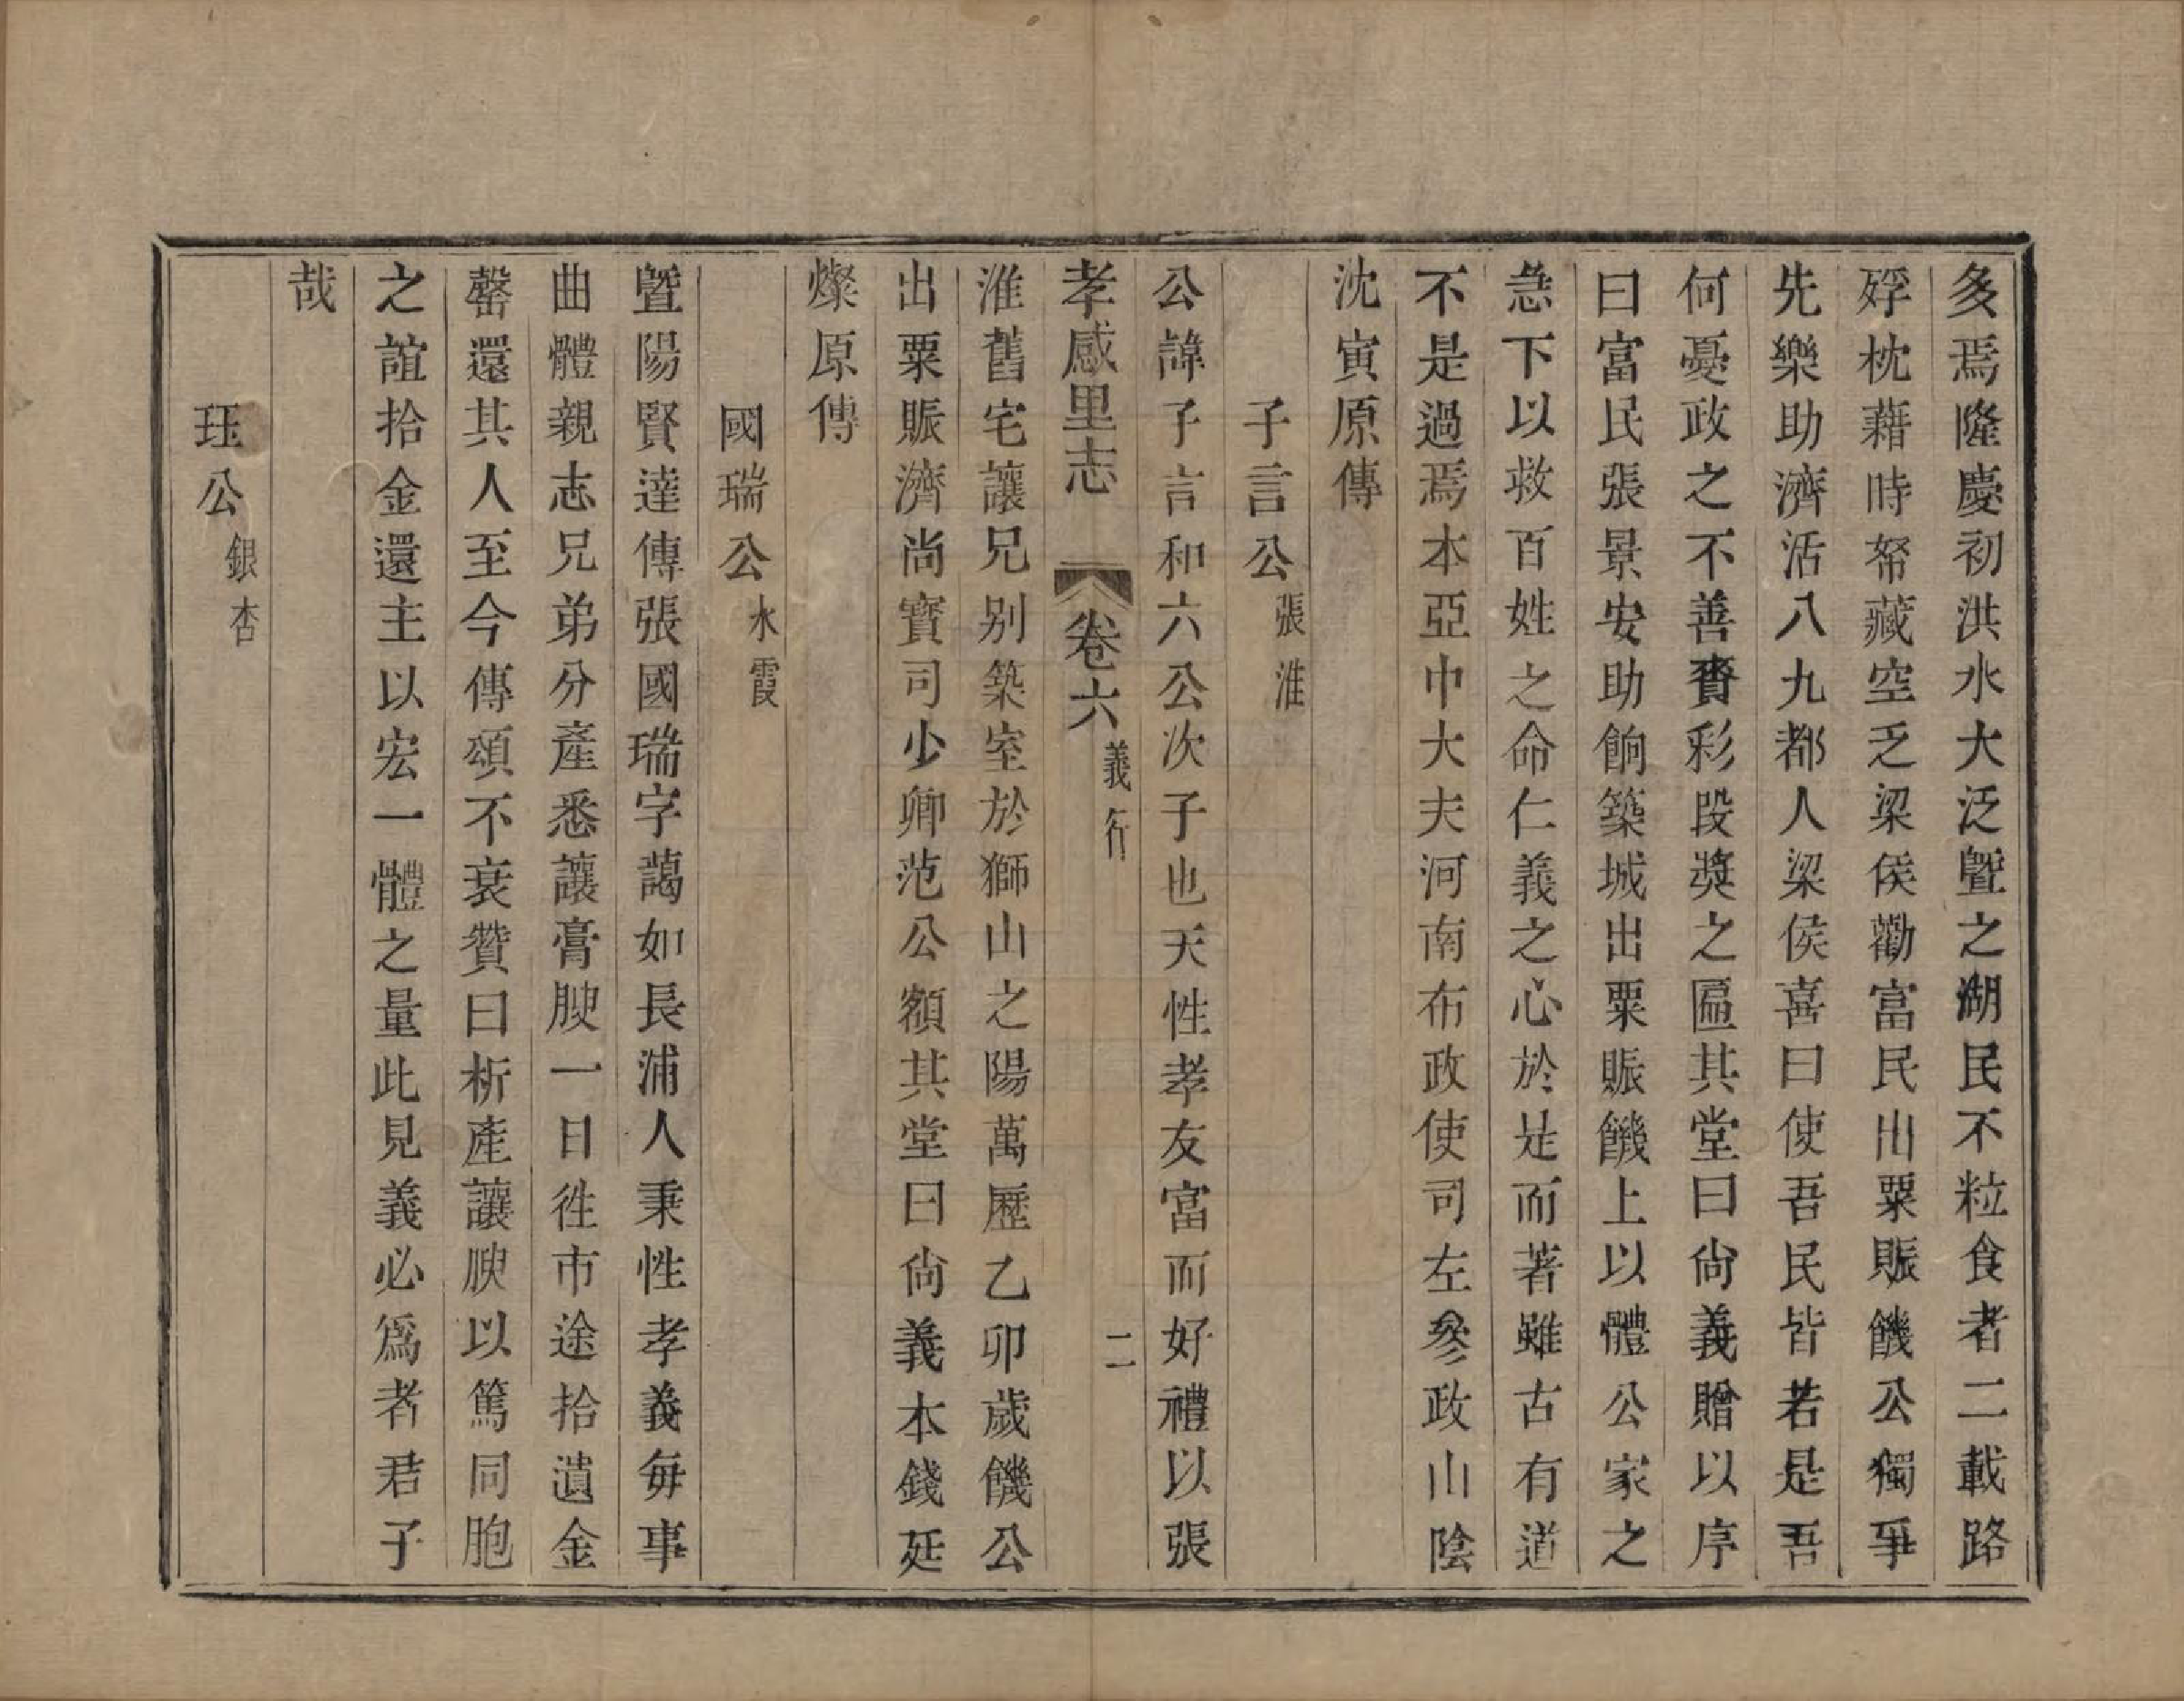 多焉隆慶初洪水大泛曁之湖民不粒食者二載路
殍枕藉時帑藏空乏梁侯勸富民出粟賑饑公獨爭
先樂助濟活八九都人梁侯喜曰使吾民皆若是吾
何憂政之不善賚彩段奬之匾其堂曰尙義贈以序
曰富民張景安助餉築城出粟賑饑上以體公家之
急下以救百姓之命仁義之心於是而著雖古有道
不是過焉本亞中大夫河南布政使司左參政山陰
沈寅原傳
子言公張淮
公諱子言和六公次子也天性孝友富而好禮以張
孝感里志 卷六義行 二
淮舊宅讓兄别築室於獅山之陽萬歷乙卯歲饑公
出粟賑濟尚寶司少卿范公額其堂曰尙義本錢延
燦原傳
國瑞公水霞
曁陽賢達傳張國瑞字藹如長浦人秉性孝義每事
曲體親志兄弟分產悉讓膏腴一日徃市途拾遺金
罄還其人至今傳頌不衰贊曰析產讓腴以篤同胞
之誼拾金還主以宏一體之量此見義必爲者君子
哉
珏公銀杏